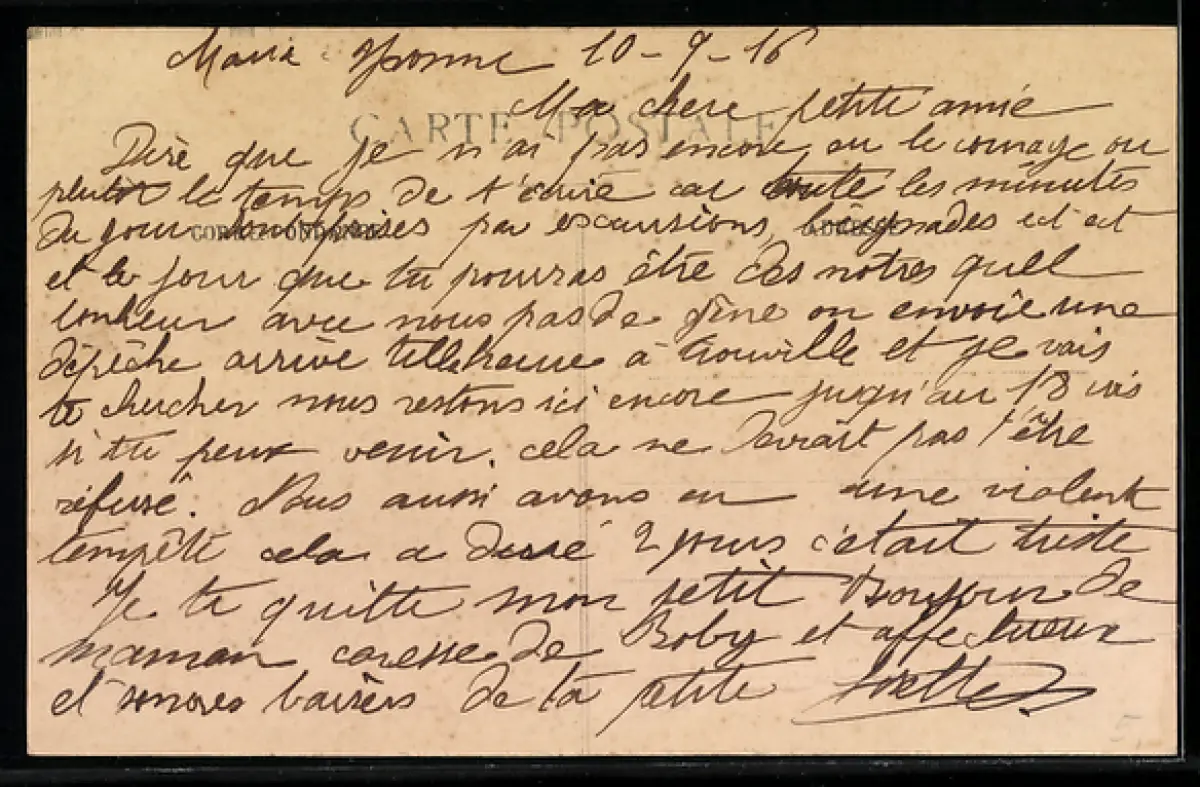 Maria Yvonne 10-9-16
CARTE POSTALE
Ma chere petite amie
Dire que je n'ai pas encore eu le courage ou
plutot le temps de t'ecrire car toute les minutes
du jour sont prises par excursions, baignades ect ect
CORRESPONDANCE ADRESSE
et le jour que tu pourras être des notres quell
bonheur avec nous pas de gêne on envoie une
dépêche arrive telle heure à Trouville et je vais
te chercher nous restons ici encore jusqu'au 18 vois
si tu peux venir. cela ne devrait pas t'être
réfusé. Nous aussi avons eu une violent
tempête cela a duré 2 jours c'était triste
Je te quitte mon petit Bonjour de
maman caresse de Boby et affectueux
et sonores baisers de ta petite